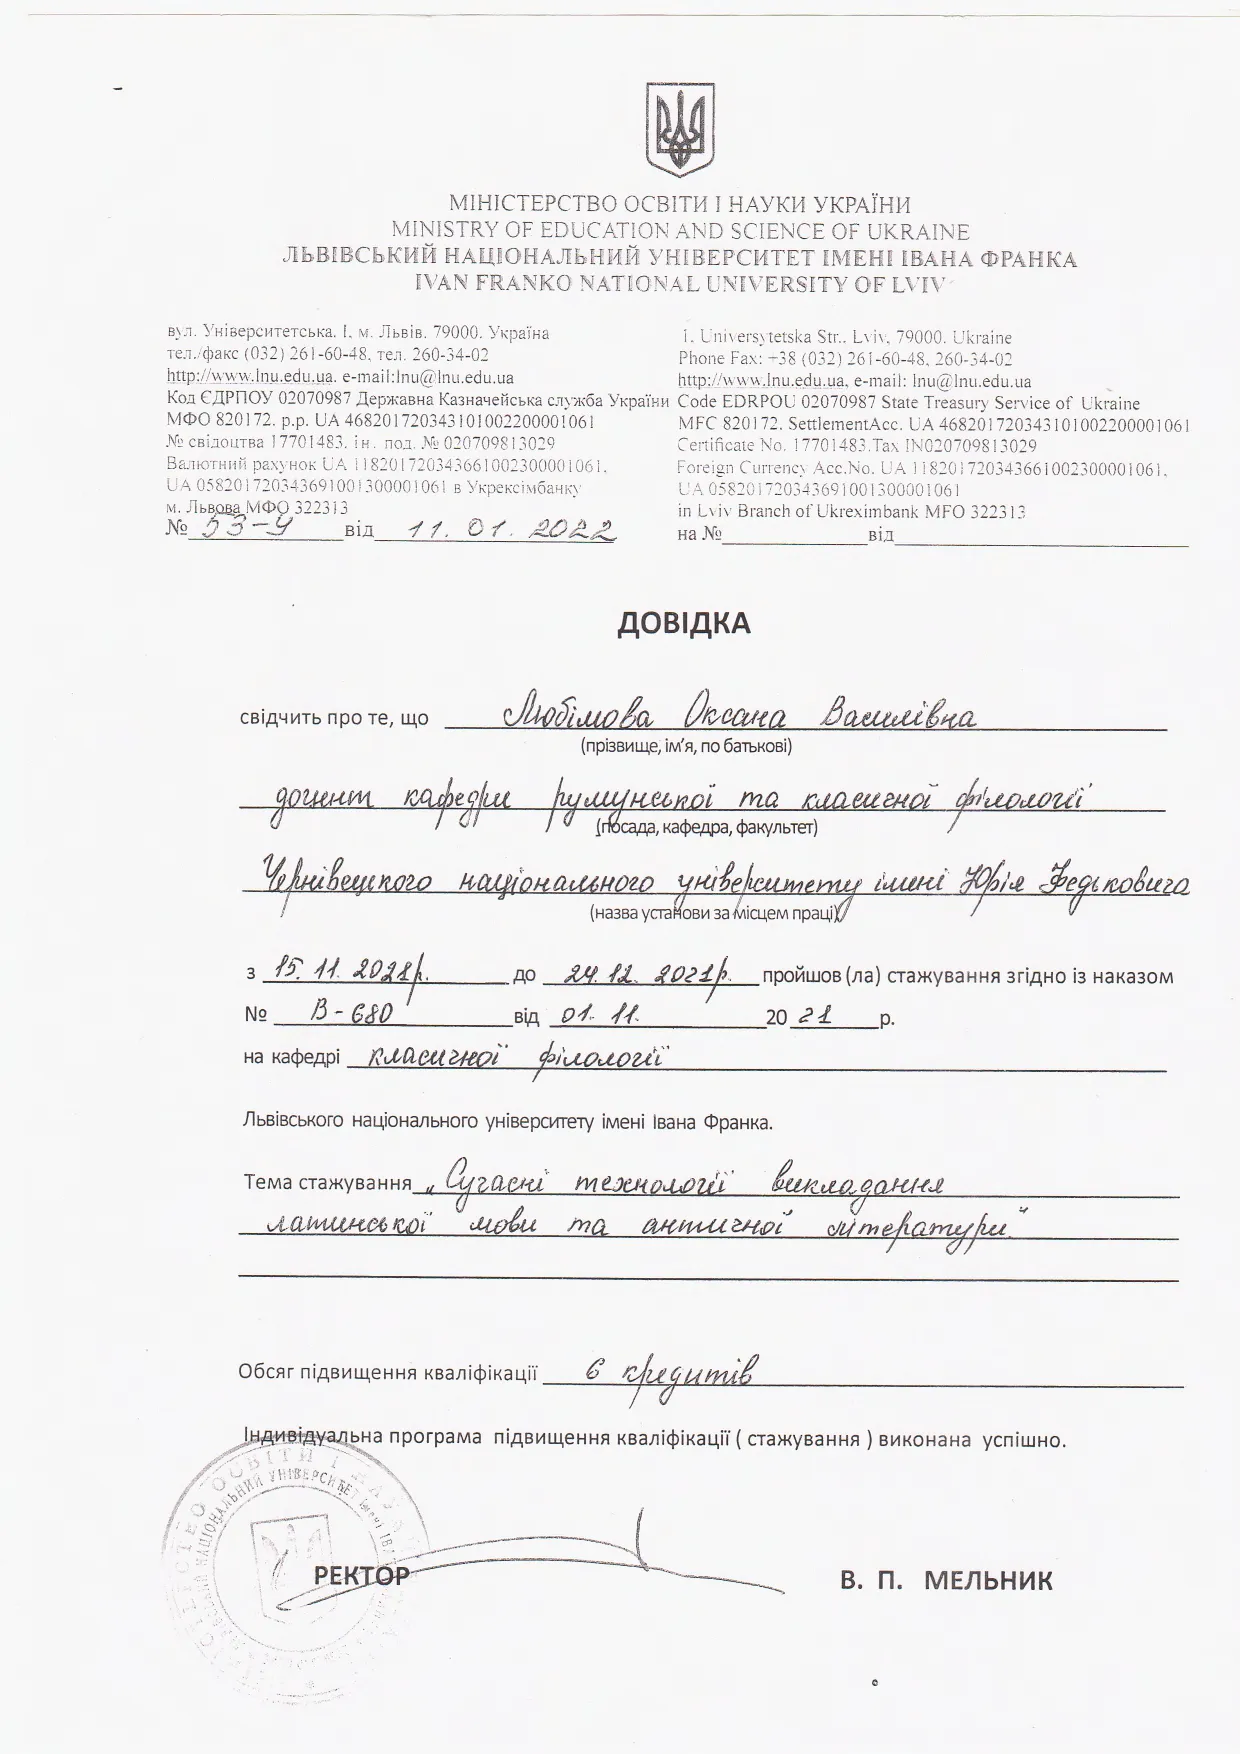 МІНІСТЕРСТВО ОСВІТИ І НАУКИ УКРАЇНИ
MINISTRY OF EDUCATION AND SCIENCE OF UKRAINE
ЛЬВІВСЬКИЙ НАЦІОНАЛЬНИЙ УНІВЕРСИТЕТ ІМЕНІ ІВАНА ФРАНКА
IVAN FRANKO NATIONAL UNIVERSITY OF LVIV
вул. Університетська, 1, м. Львів, 79000, Україна
тел./факс (032) 261-60-48, тел. 260-34-02
http://www.lnu.edu.ua, e-mail:lnu@lnu.edu.ua
Код ЄДРПОУ 02070987 Державна Казначейська служба України
МФО 820172, р.р. UA 468201720343101002200001061
№ свідоцтва 17701483, ін. под. № 020709813029
Валютний рахунок UA 118201720343661002300001061,
UA 058201720343691001300001061 в Укрексімбанку
м. Львова МФО 322313
№ 53-У від 11. 01. 2022
1, Universytetska Str., Lviv, 79000, Ukraine
Phone Fax: +38 (032) 261-60-48, 260-34-02
http://www.lnu.edu.ua, e-mail: lnu@lnu.edu.ua
Code EDRPOU 02070987 State Treasury Service of Ukraine
MFC 820172, SettlementAcc. UA 468201720343101002200001061
Certificate No. 17701483,Tax IN020709813029
Foreign Currency Acc.No. UA 118201720343661002300001061,
UA 058201720343691001300001061
in Lviv Branch of Ukreximbank MFO 322313
на № від
ДОВІДКА
свідчить про те, що Любімова Оксана Василівна
(прізвище, ім'я, по батькові)
доцент кафедри румунської та класичної філології
(посада, кафедра, факультет)
Чернівецького національного університету імені Юрія Федьковича
(назва установи за місцем праці)
з 15. 11. 2021р. до 24. 12. 2021р. пройшов (ла) стажування згідно із наказом
№ В-680 від 01. 11. 20 21 р.
на кафедрі класичної філології
Львівського національного університету імені Івана Франка.
Тема стажування „Сучасні технології викладання
латинської мови та античної літератури"
Обсяг підвищення кваліфікації 6 кредитів
Індивідуальна програма підвищення кваліфікації ( стажування ) виконана успішно.
РЕКТОР В. П. МЕЛЬНИК